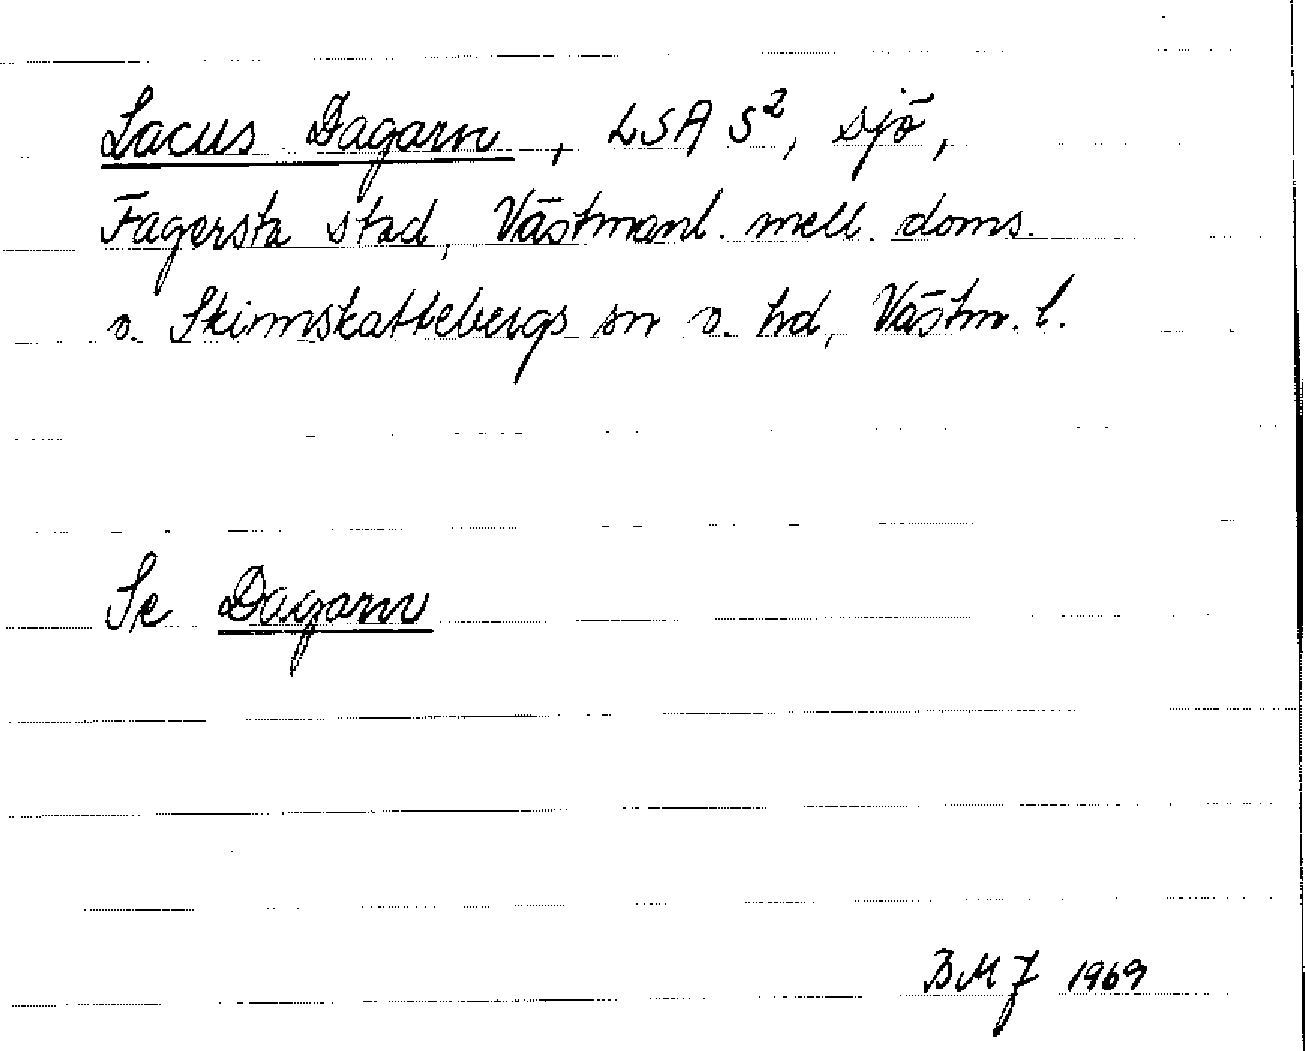 Lacus Dagarn, LSA S², sjö,
Fagersta stad, Västmanl. mell. doms.
o. Skinnskattebergs sn o. hd, Västm. l.
Se Dagarn
BMJ 1969